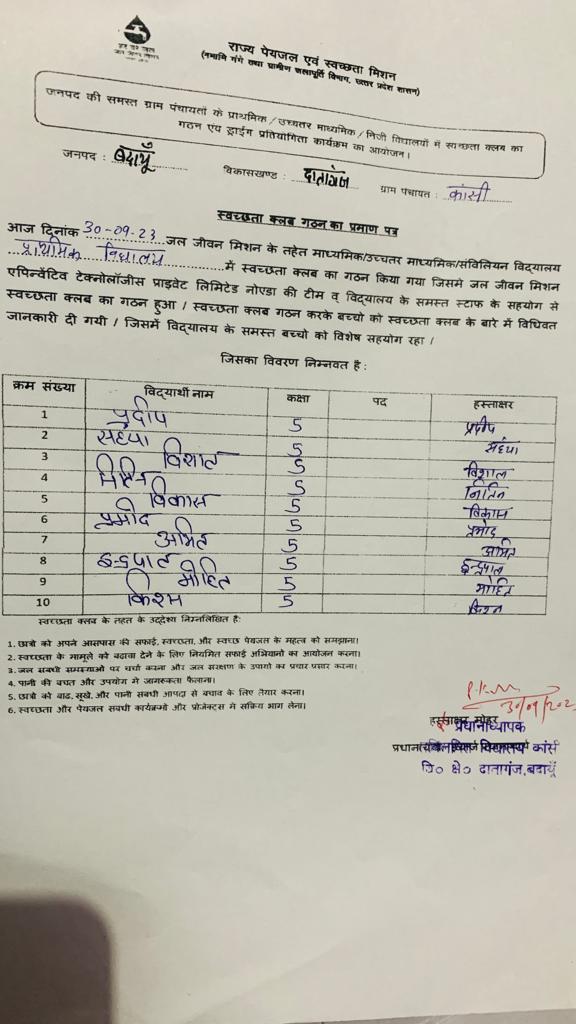 राज्य पेयजल एवं स्वच्छता मिशन
(नमामि गंगे तथा ग्रामीण जलापूर्ति विभाग, उत्तर प्रदेश शासन)
जनपद की समस्त ग्राम पंचायतों के प्राथमिक / उच्चतर माध्यमिक / निजी विद्यालयों में स्वच्छता क्लब का
गठन एंव ड्राईंग प्रतियोगिता कार्यक्रम का आयोजन।
जनपद : बदायूँ विकासखण्ड : दातागंज ग्राम पंचायत : कांसी
स्वच्छता क्लब गठन का प्रमाण पत्र
आज दिनांक 30-09-23 जल जीवन मिशन के तहेत माध्यमिक/उच्चतर माध्यमिक/संविलियन विद्यालय
प्राथमिक विद्यालय में स्वच्छता क्लब का गठन किया गया जिसमे जल जीवन मिशन
एपिन्वेंटिव टेक्नोलॉजीस प्राइवेट लिमिटेड नोएडा की टीम व् विद्यालय के समस्त स्टाफ के सहयोग से
स्वच्छता क्लब का गठन हुआ / स्वच्छता क्लब गठन करके बच्चो को स्वच्छता क्लब के बारे में विधिवत
जानकारी दी गयी / जिसमें विद्यालय के समस्त बच्चो को विशेष सहयोग रहा /
जिसका विवरण निम्नवत है :
क्रम संख्या विद्यार्थी नाम कक्षा पद हस्ताक्षर
1 प्रदीप 5 प्रदीप
2 संध्या 5 संध्या
3 विशाल 5 विशाल
4 नितिन 5 नितिन
5 विकास 5 विकास
6 प्रमोद 5 प्रमोद
7 अमित 5 अमित
8 इन्द्रपाल 5 इन्द्रपाल
9 मोहित 5 मोहित
10 किशन 5 किशन
स्वच्छता क्लब के तहत के उद्देश्य निम्नलिखित है:
1. छात्रो को अपने आसपास की सफाई, स्वच्छता, और स्वच्छ पेयजल के महत्व को समझाना।
2. स्वच्छता के मामूले को बढ़ावा देने के लिए नियमित सफाई अभियानों का आयोजन करना।
3. जल सबंधी समस्याओं पर चर्चा करना और जल संरक्षण के उपायों का प्रचार प्रसार करना।
4. पानी की बचत और उपयोग में जागरुकता फैलाना।
5. छात्रो को बाढ, सूखे, और पानी सबंधी आपदा से बचाव के लिए तैयार करना।
6. स्वच्छता और पेयजल सबंधी कार्यक्रमो और प्रोजेक्ट्स में सक्रिय भाग लेना।
30/09/202
हस्ताक्षर मोहर
प्रधानाध्यापक
विद्यालय कांसी
वि० क्षे० दातागंज, बदायूँ